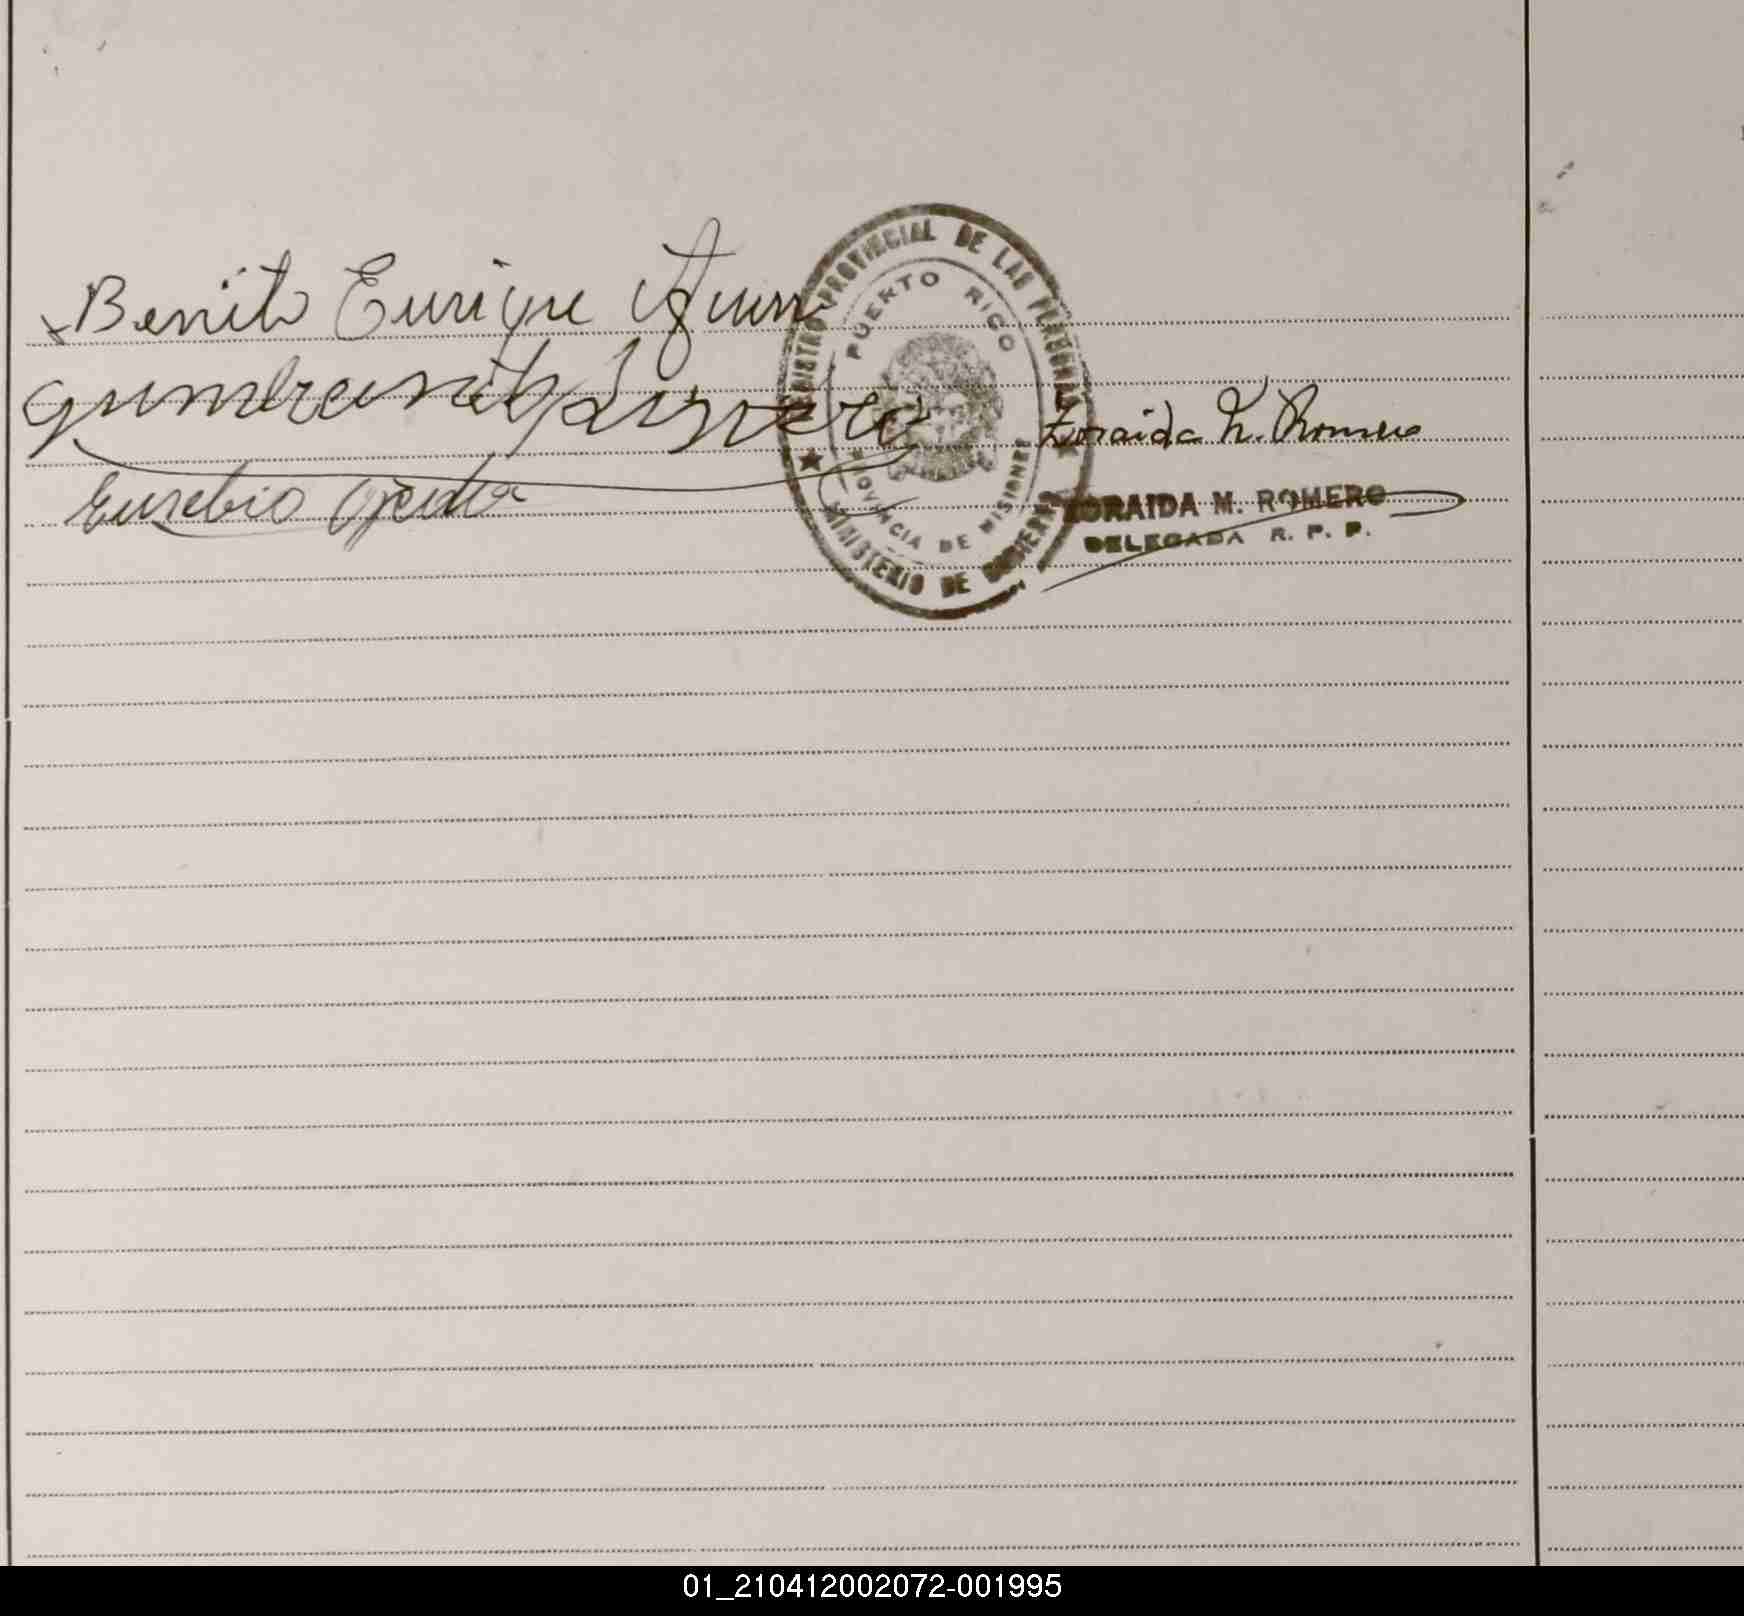 Benito Enrique
Eusebio Ojeda
Zoraida M. Romero
ZORAIDA M. ROMERO
DELEGADA R. P. P.
REGISTRO PROVINCIAL DE LAS PERSONAS
PUERTO RICO
PROVINCIA DE MISIONES
MINISTERIO DE GOBIERNO
01_210412002072-001995